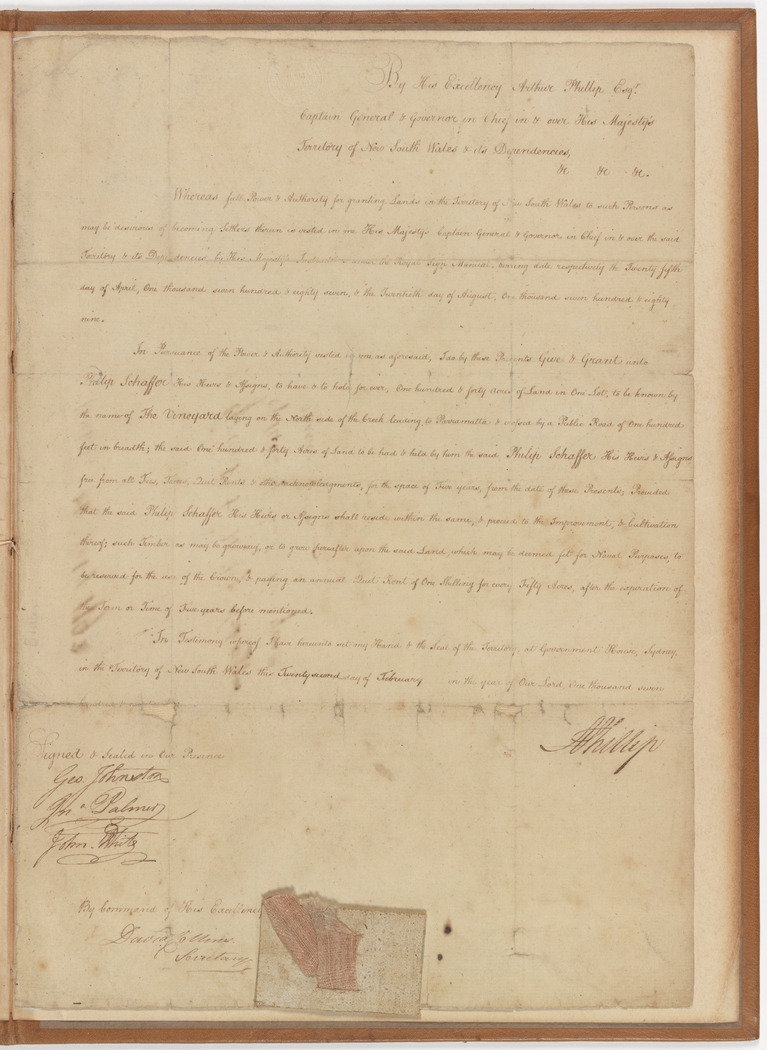 By His Excellency Arthur Phillip Esqr.
Captain General & Governor in Chief in & over His Majesty's
Territory of New South Wales & its Dependencies,
&c &c &c.
Whereas full Power & Authority for granting Lands in the Territory of New South Wales, to such Persons as
may be desirous of becoming Settlers therein is vested in me His Majesty's Captain General & Governor in Chief in & over the said
Territory & its Dependencies, by His Majesty's under the Royal Sign Manual, bearing date respectively the Twenty fifth
day of April, One thousand seven hundred & eighty seven, & the Twentieth day of August, One thousand seven hundred & eighty
nine.
In Pursuance of the Power & Authority vested in me as aforesaid, I do by these Presents Give & Grant unto
Philip Schaffer His Heirs & Assigns, to have & to hold for ever, One hundred & forty Acres of Land in One Lot, to be known by
the name of The Vineyard laying on the North side of the Creek leading to Parramatta & crossed by a Public Road of One hundred
feet in breadth; the said One hundred & forty Acres of Land to be had & held by him the said Philip Schaffer His Heirs & Assigns
free from all Fees, Taxes, Quit Rents & other acknowledgments, for the space of Five years, from the date of these Presents; Provided
that the said Philip Schaffer His Heirs or Assigns shall reside within the same, & proceed to the Improvement, & Cultivation
thereof; such Timber as may be growing, or to grow hereafter upon the said Land, which may be deemed fit for Naval Purposes, to
be reserved for the use of the Crown, & paying an annual Quit Rent of One Shilling for every Fifty Acres, after the expiration of
the Term or Time of Five years before mentioned.
In Testimony whereof I have hereunto set my Hand & the Seal of the Territory, at Government House, Sydney,
in the Territory of New South Wales this Twenty second day of February in the year of Our Lord One thousand seven
A Phillip
Signed & Sealed in Our Presence
Geo. Johnston
Jno. Palmer
John White
By Command of His Excellency
David Collins
Secretary